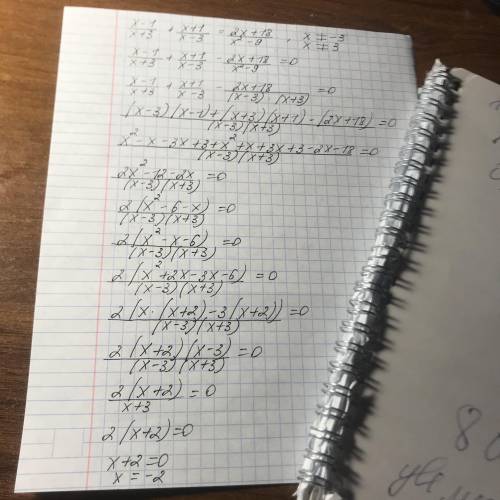 (x-1)/(x+3) + (x+1)/(x-3) = (2x+18)/(x²-9) , x ≠ -3
x ≠ 3
(x-1)/(x+3) + (x+1)/(x-3) - (2x+18)/(x²-9) = 0
(x-1)/(x+3) + (x+1)/(x-3) - (2x+18)/((x-3)·(x+3)) = 0
((x-3)(x-1)+(x+3)(x+1)-(2x+18))/((x-3)(x+3)) = 0
(x²-x-3x+3+x²+x+3x+3-2x-18)/((x-3)(x+3)) = 0
(2x²-12-2x)/((x-3)(x+3)) = 0
2(x²-6-x)/((x-3)(x+3)) = 0
2(x²-x-6)/((x-3)(x+3)) = 0
2(x²+2x-3x-6)/((x-3)(x+3)) = 0
2(x·(x+2)-3(x+2))/((x-3)(x+3)) = 0
2(x+2)(x-3)/((x-3)(x+3)) = 0
2(x+2)/(x+3) = 0
2(x+2)=0
x+2=0
x=-2
8